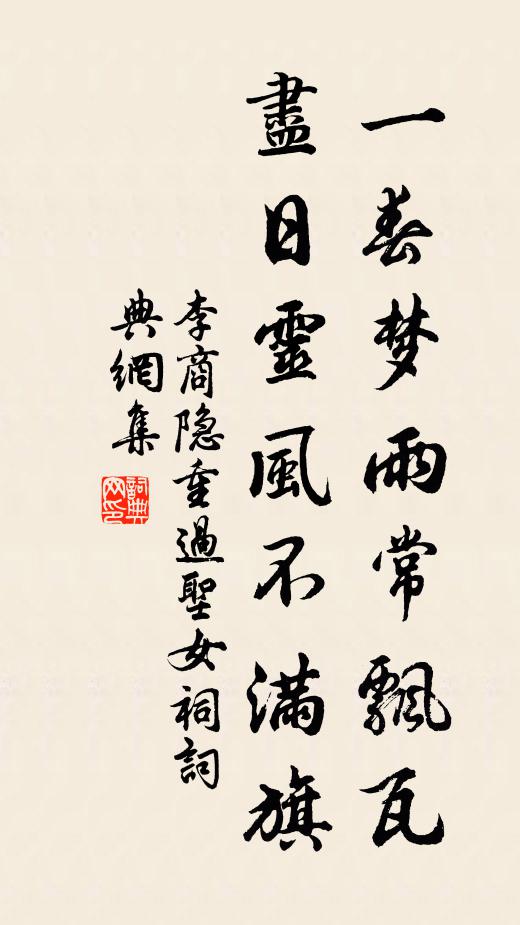 一春梦雨常飄瓦
盡日靈風不滿旗
李商隐重過聖女祠詞
典網集
詞典网印